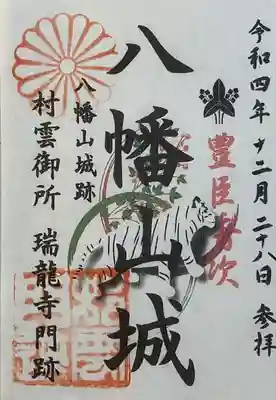 令和四年十二月二十八日 参拝
豊臣秀次
八幡山城
八幡山城跡
村雲御所 瑞龍寺門跡